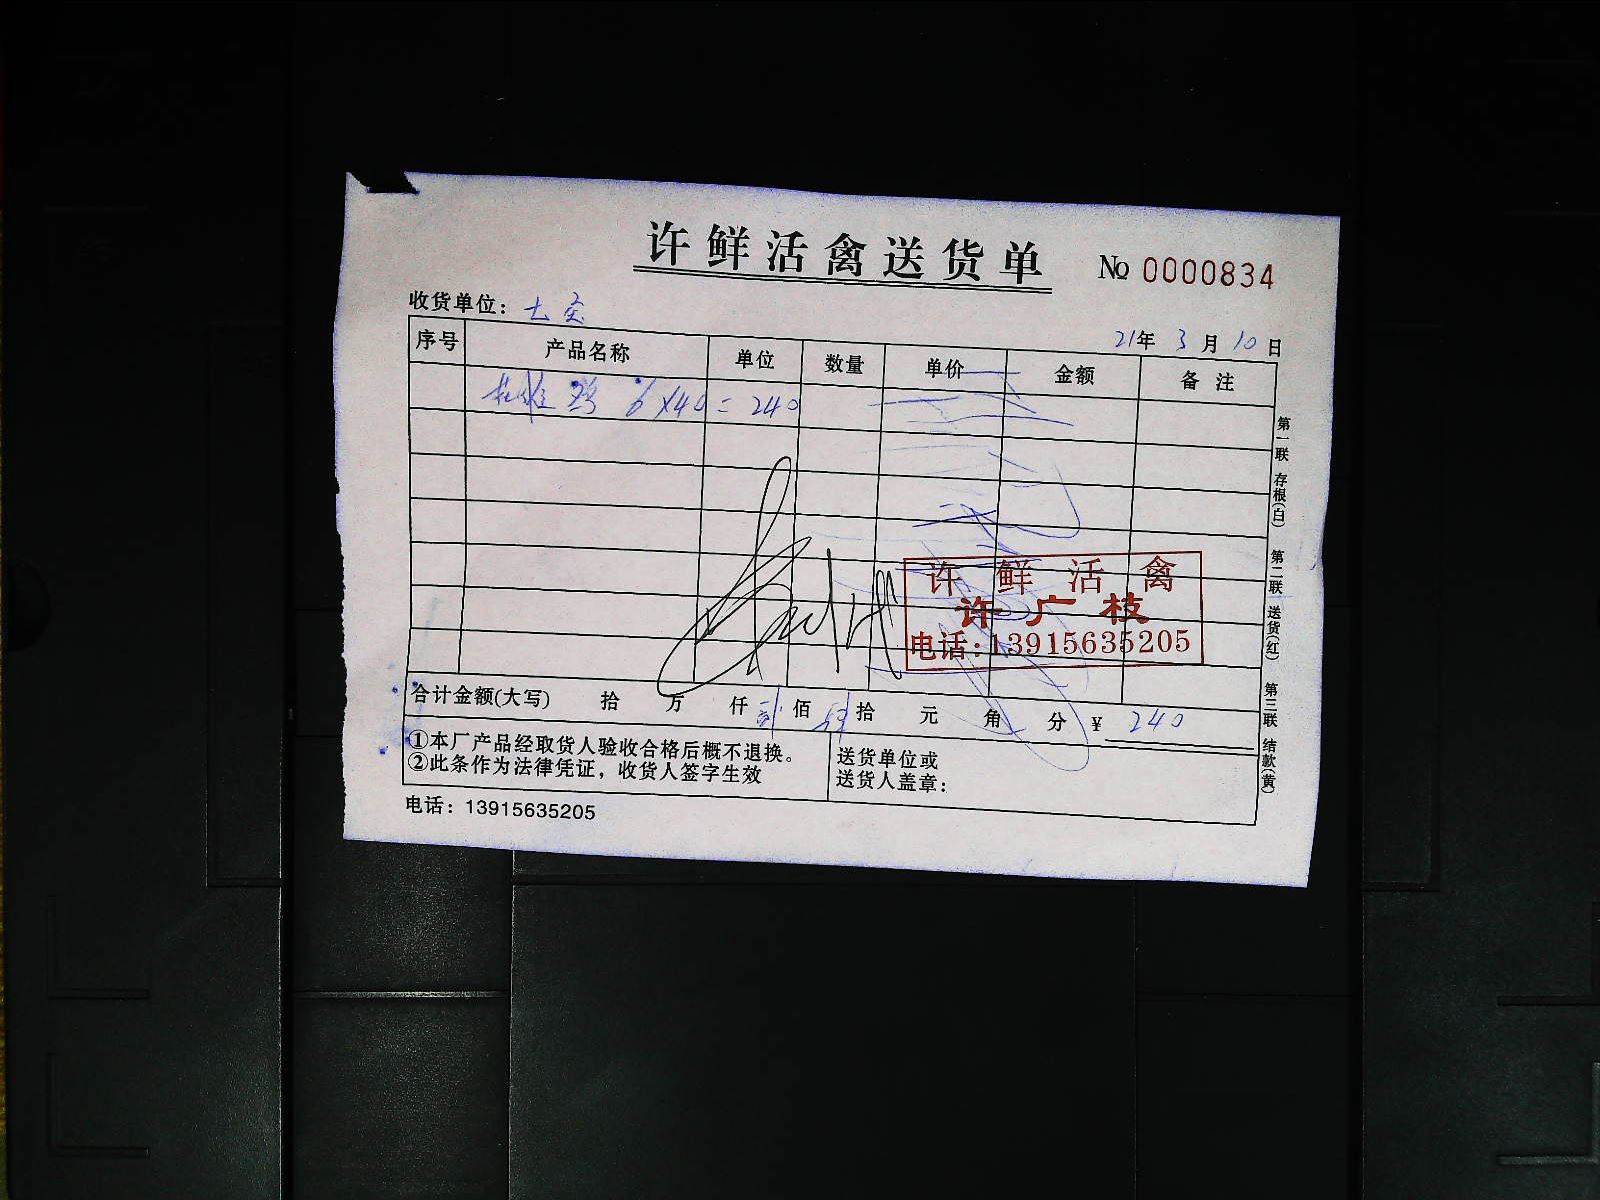 许鲜活禽送货单 № 0000834
收货单位：
21年 3月 10日
序号 产品名称 单位 数量 单价 金额 备注
鸡 6×40=240
许鲜活禽
许广枝
电话:13915635205
合计金额(大写) 拾 万 仟 贰佰 肆拾 元 角 分 ¥ 240
①本厂产品经取货人验收合格后概不退换。
②此条作为法律凭证，收货人签字生效
送货单位或
送货人盖章：
电话：13915635205
第一联 存根(白) 第二联 送货(红) 第三联 结款(黄)